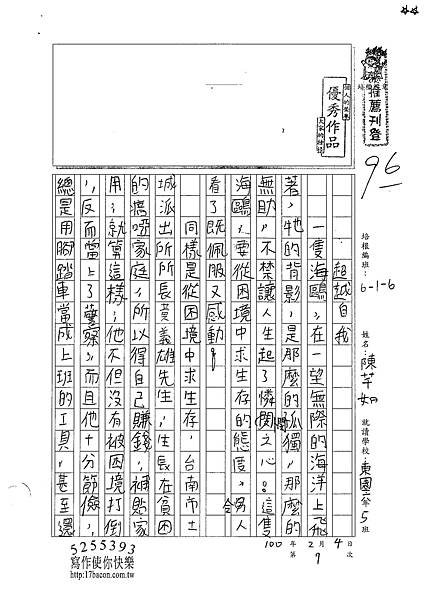 培根
推薦刊登
個人的榮譽
優秀作品
大家的榜樣
96
培根編班：6-1-6
姓名 陳芊如
就讀學校：東國 5 班
100 年 2 月 4 日
第 7 次
超越自我
一隻海鷗，在一望無際的海洋上飛
著，牠的背影，是那麼的孤獨，那麼的
無助，不禁讓人生起了憐憫之心。這隻
海鷗，要從困境中求生存的態度，令人
看了既佩服又感動！
同樣是從困境中求生存，台南市土
城派出所所長黃義雄先生，生長在貧困
的瘖啞家庭，所以得自己賺錢，補貼家
用，就算這樣，他不但沒有被困境打倒
，反而當上了警察，而且他十分節儉，
總是用腳踏車當成上班的工具，甚至還
5255393
寫作使你快樂
http://17bacon.com.tw